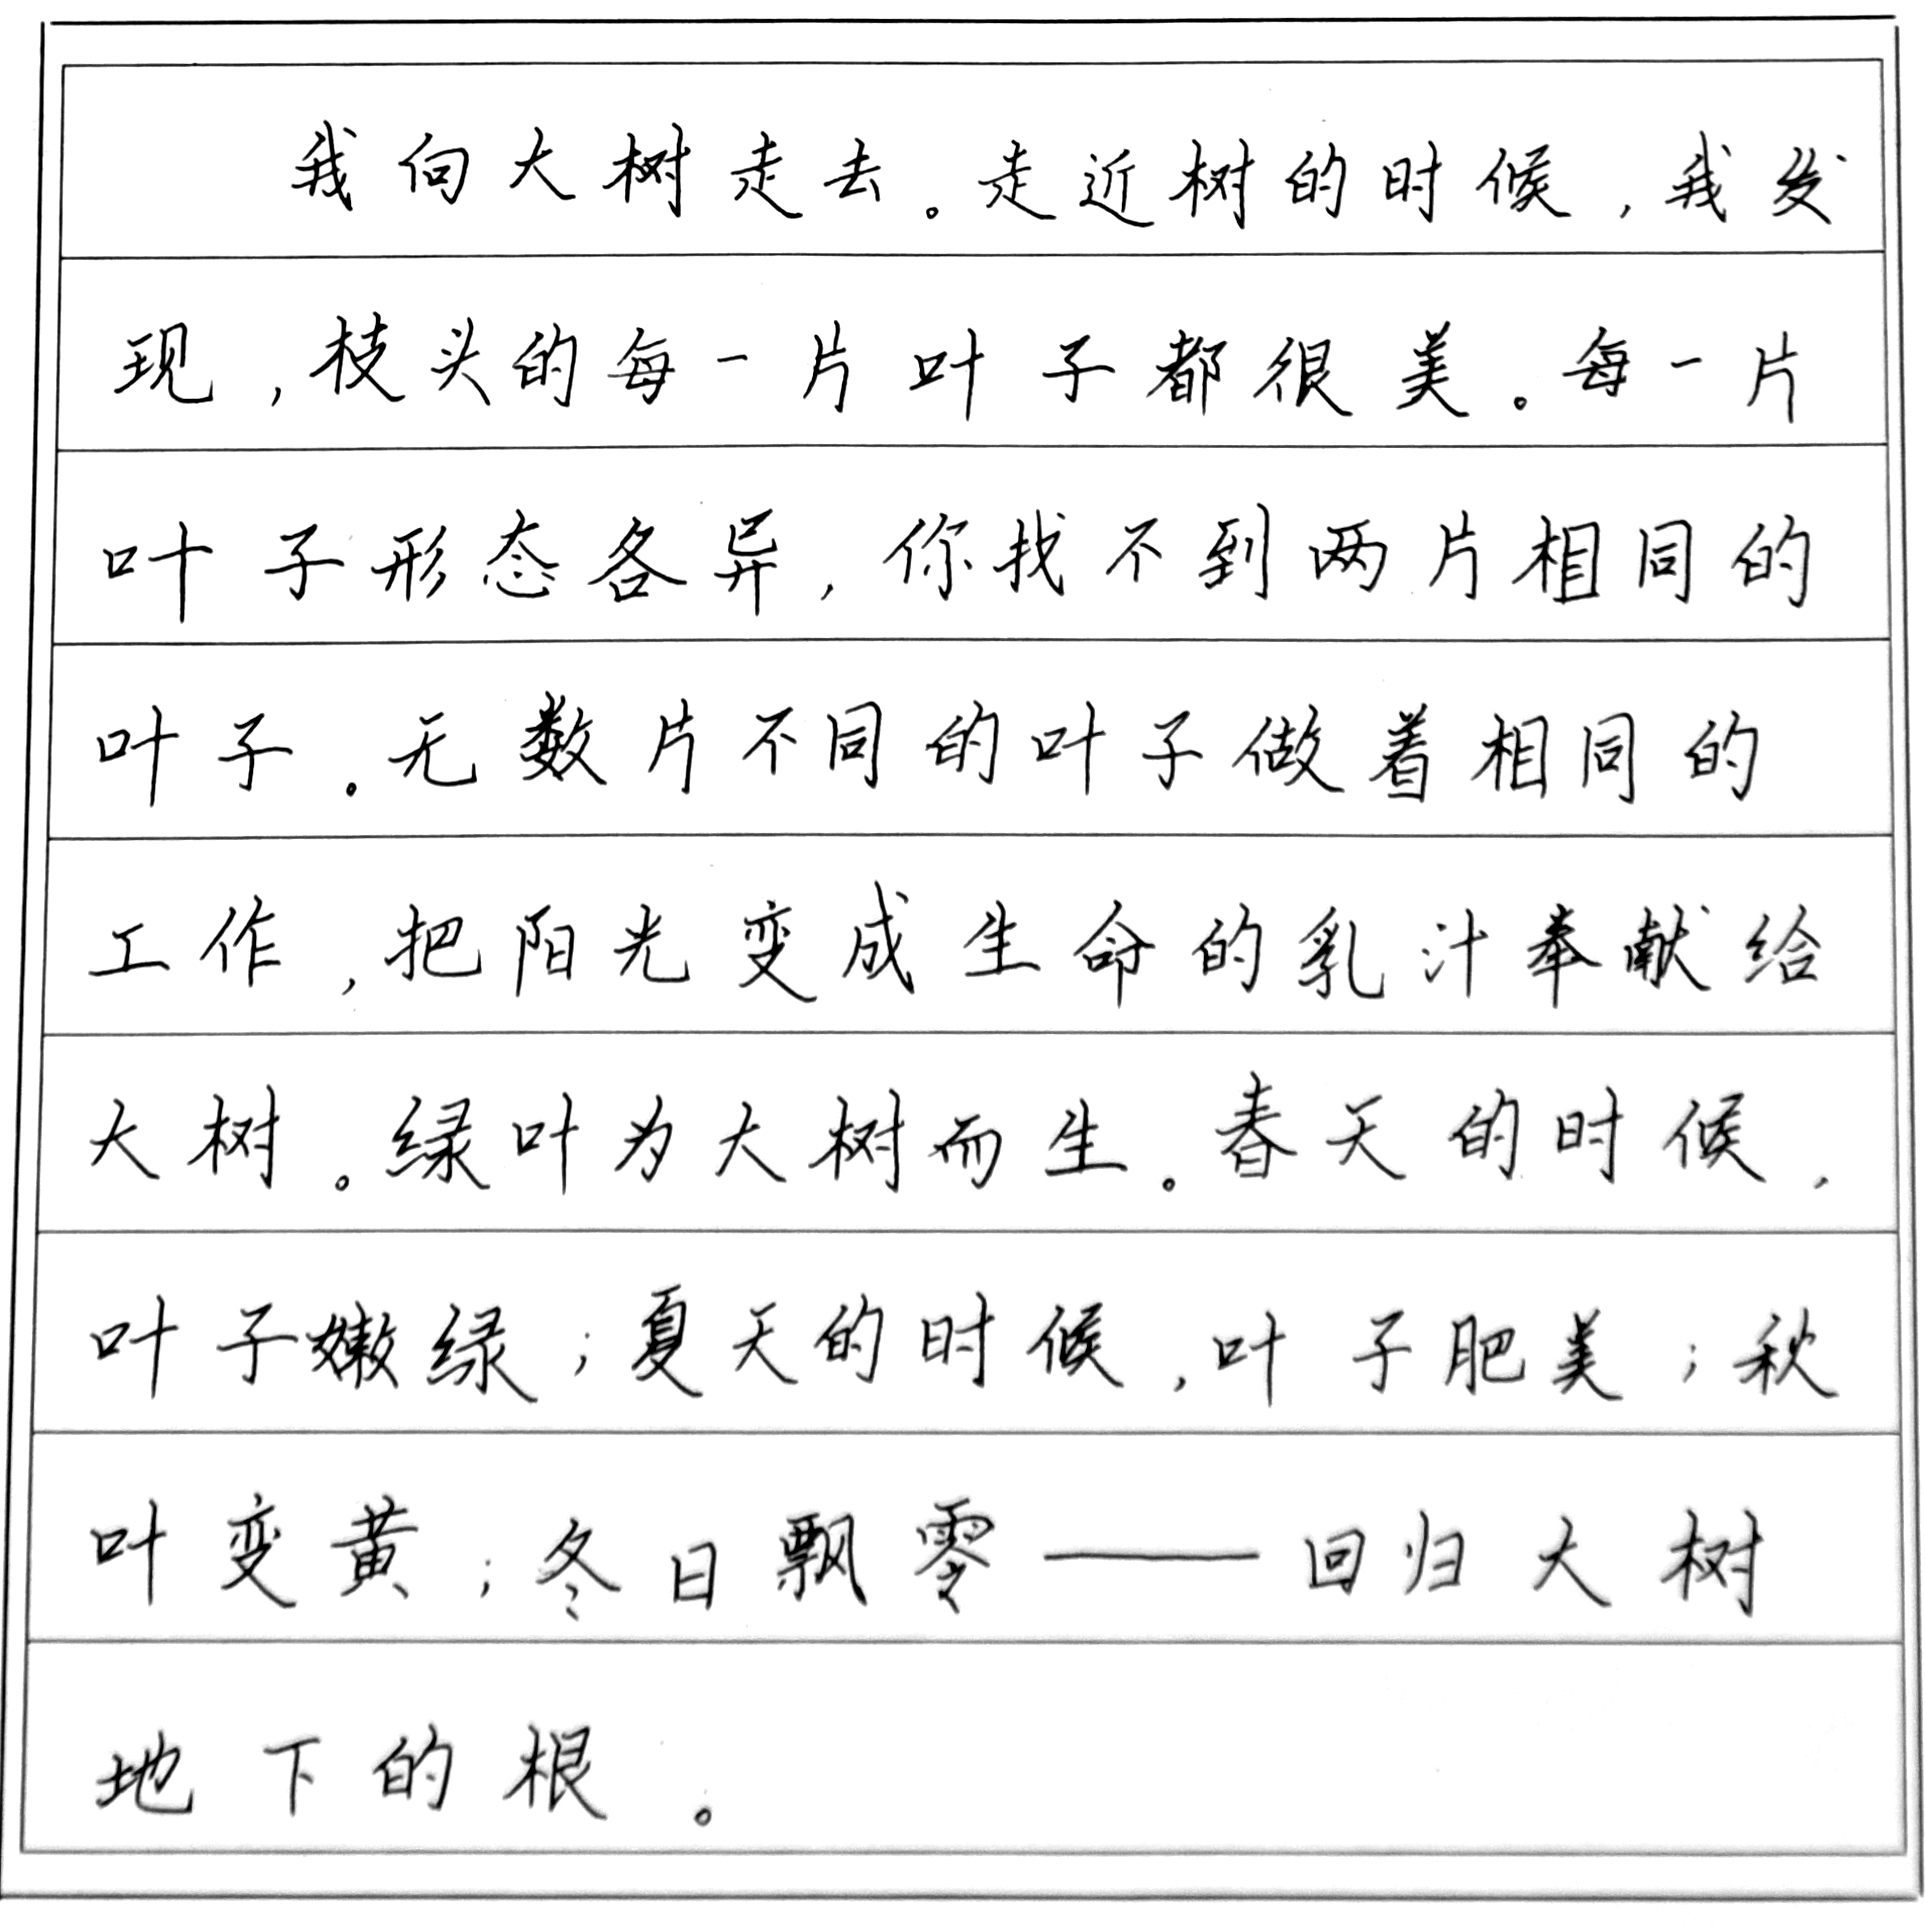 我向大树走去。走近树的时候，我发
现，枝头的每一片叶子都很美。每一片
叶子形态各异，你找不到两片相同的
叶子。无数片不同的叶子做着相同的
工作，把阳光变成生命的乳汁奉献给
大树。绿叶为大树而生。春天的时候，
叶子嫩绿；夏天的时候，叶子肥美；秋
叶变黄；冬日飘零——回归大树
地下的根。